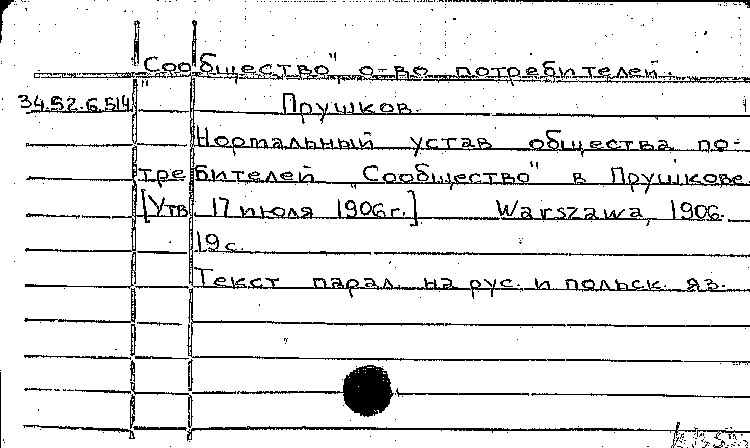 "Сообщество" о-во потребителей.
34.52.6.514 Прушков.
Нормальный устав общества по-
требителей "Сообщество" в Прушкове
[Утв. 17 июля 1906 г.] Warszawa, 1906.
19 с.
Текст парал. на рус. и польск. яз.